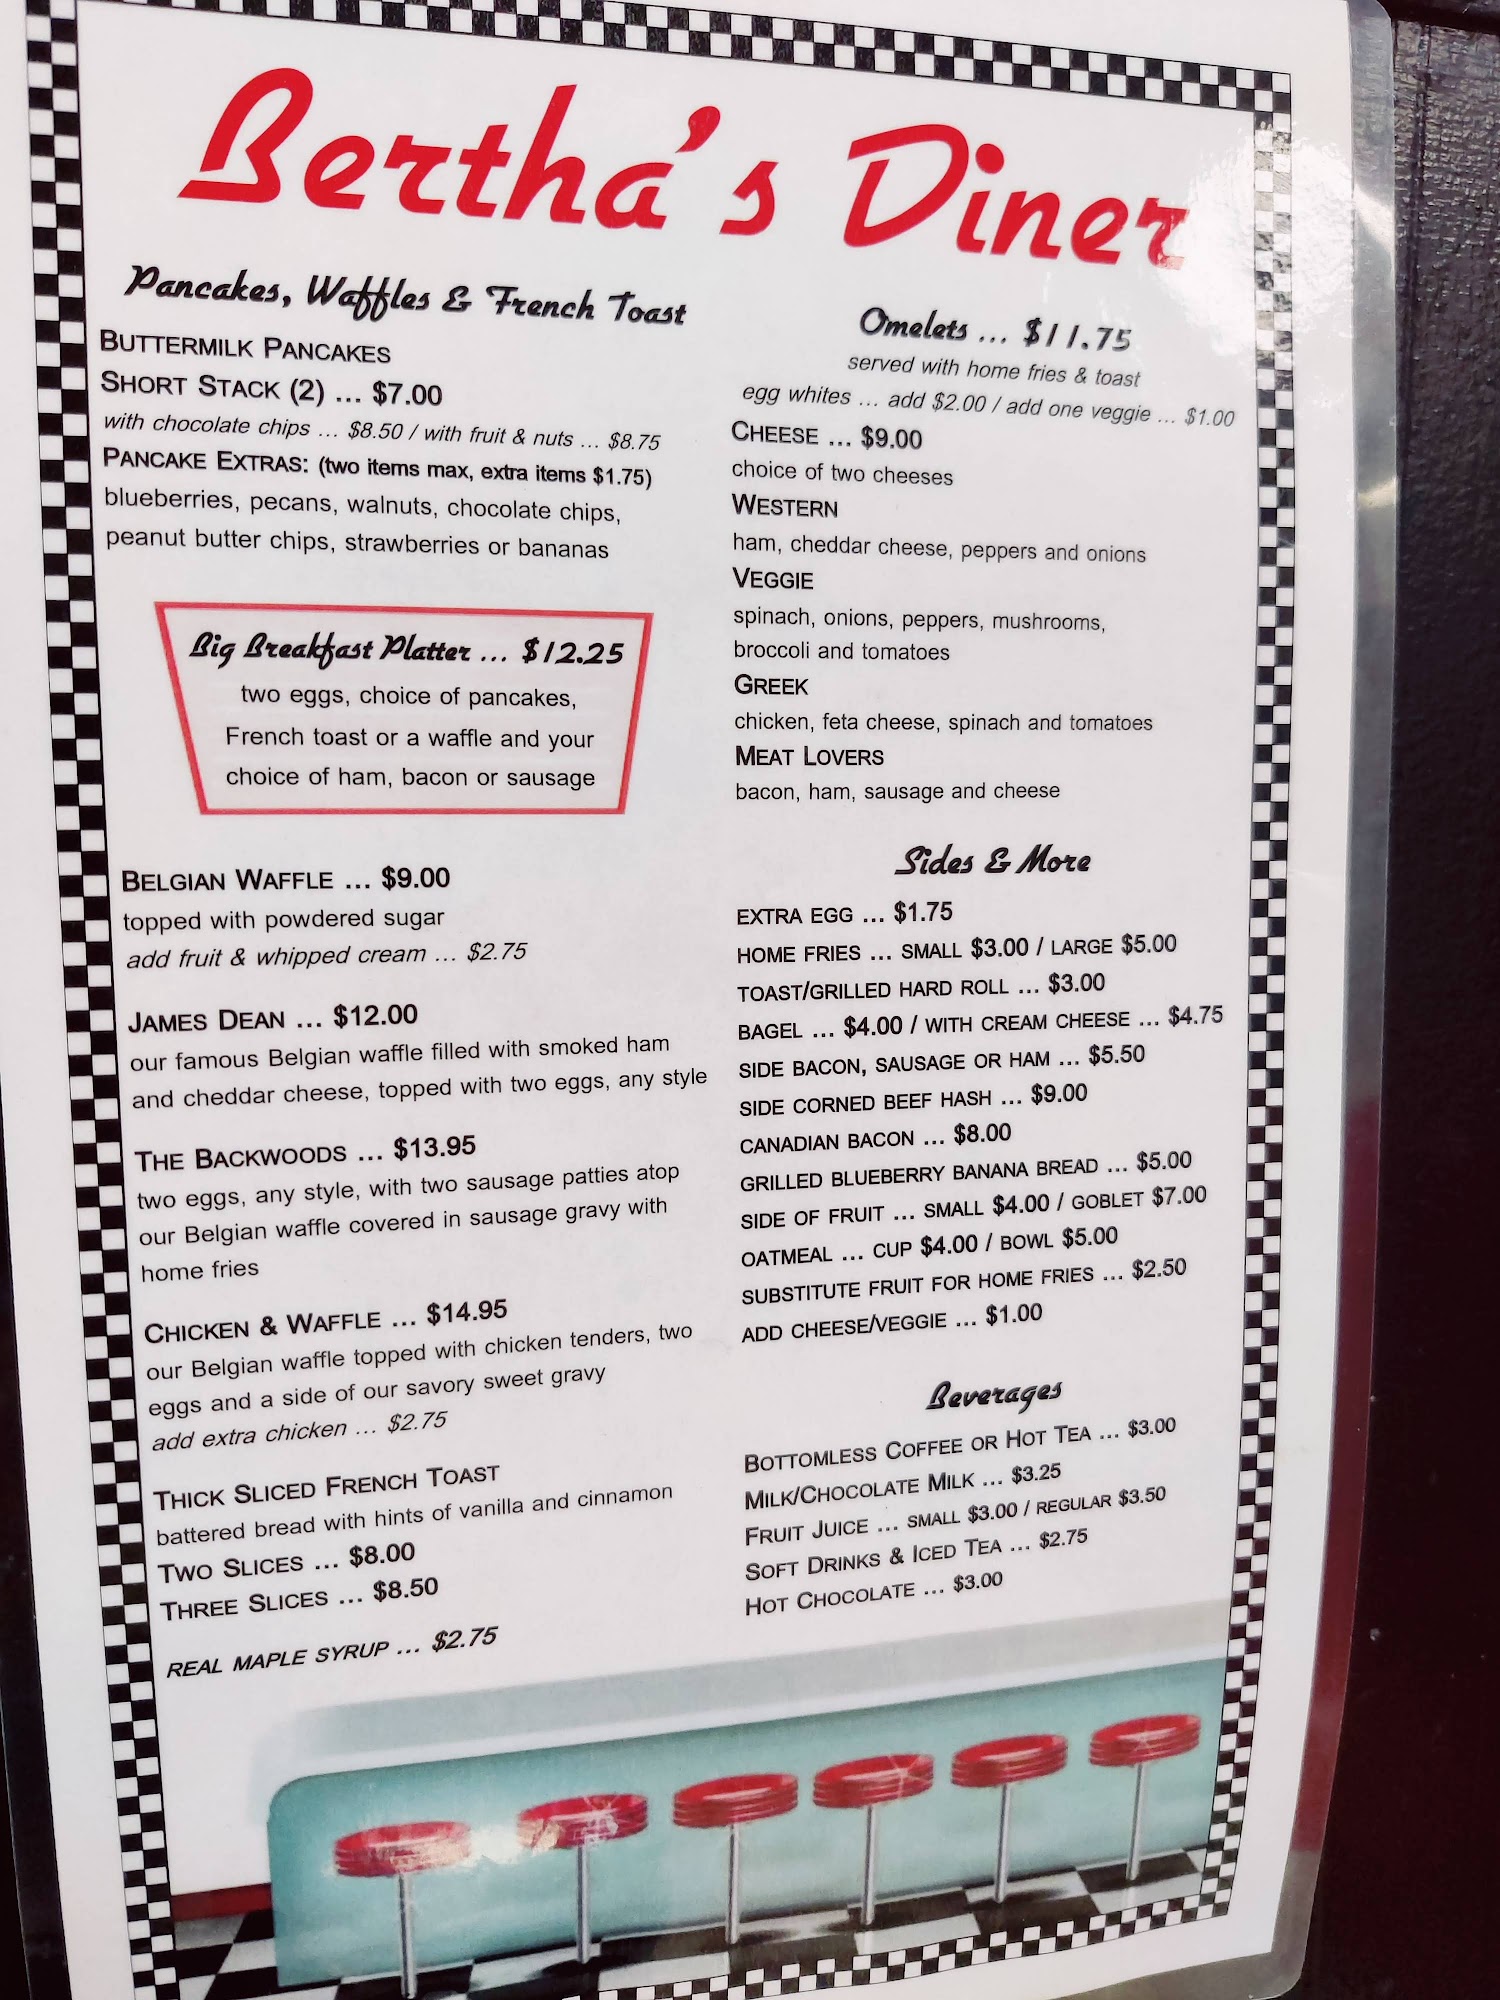 Bertha's Diner
Pancakes, Waffles & French Toast
BUTTERMILK PANCAKES
SHORT STACK (2) ... $7.00
with chocolate chips ... $8.50 / with fruit & nuts ... $8.75
PANCAKE EXTRAS: (two items max, extra items $1.75)
blueberries, pecans, walnuts, chocolate chips,
peanut butter chips, strawberries or bananas
Big Breakfast Platter ... $12.25
two eggs, choice of pancakes,
French toast or a waffle and your
choice of ham, bacon or sausage
BELGIAN WAFFLE ... $9.00
topped with powdered sugar
add fruit & whipped cream ... $2.75
JAMES DEAN ... $12.00
our famous Belgian waffle filled with smoked ham
and cheddar cheese, topped with two eggs, any style
THE BACKWOODS ... $13.95
two eggs, any style, with two sausage patties atop
our Belgian waffle covered in sausage gravy with
home fries
CHICKEN & WAFFLE ... $14.95
our Belgian waffle topped with chicken tenders, two
eggs and a side of our savory sweet gravy
add extra chicken ... $2.75
THICK SLICED FRENCH TOAST
battered bread with hints of vanilla and cinnamon
TWO SLICES ... $8.00
THREE SLICES ... $8.50
REAL MAPLE SYRUP ... $2.75
Omelets ... $11.75
served with home fries & toast
egg whites ... add $2.00 / add one veggie ... $1.00
CHEESE ... $9.00
choice of two cheeses
WESTERN
ham, cheddar cheese, peppers and onions
VEGGIE
spinach, onions, peppers, mushrooms,
broccoli and tomatoes
GREEK
chicken, feta cheese, spinach and tomatoes
MEAT LOVERS
bacon, ham, sausage and cheese
Sides & More
EXTRA EGG ... $1.75
HOME FRIES ... SMALL $3.00 / LARGE $5.00
TOAST/GRILLED HARD ROLL ... $3.00
BAGEL ... $4.00 / WITH CREAM CHEESE ... $4.75
SIDE BACON, SAUSAGE OR HAM ... $5.50
SIDE CORNED BEEF HASH ... $9.00
CANADIAN BACON ... $8.00
GRILLED BLUEBERRY BANANA BREAD ... $5.00
SIDE OF FRUIT ... SMALL $4.00 / GOBLET $7.00
OATMEAL ... CUP $4.00 / BOWL $5.00
SUBSTITUTE FRUIT FOR HOME FRIES ... $2.50
ADD CHEESE/VEGGIE ... $1.00
Beverages
BOTTOMLESS COFFEE OR HOT TEA ... $3.00
MILK/CHOCOLATE MILK ... $3.25
FRUIT JUICE ... SMALL $3.00 / REGULAR $3.50
SOFT DRINKS & ICED TEA ... $2.75
HOT CHOCOLATE ... $3.00